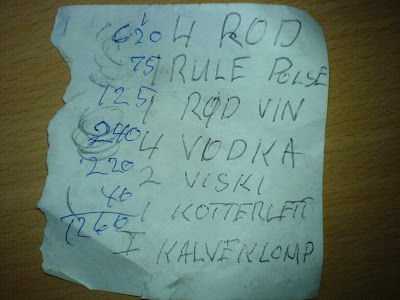 620 4 ROD
75 1 RULE POLSE
125 1 RØD VIN
240 4 VODKA
220 2 VISKI
40 1 KOTTERLETT
1260
I KALVEKLOMP